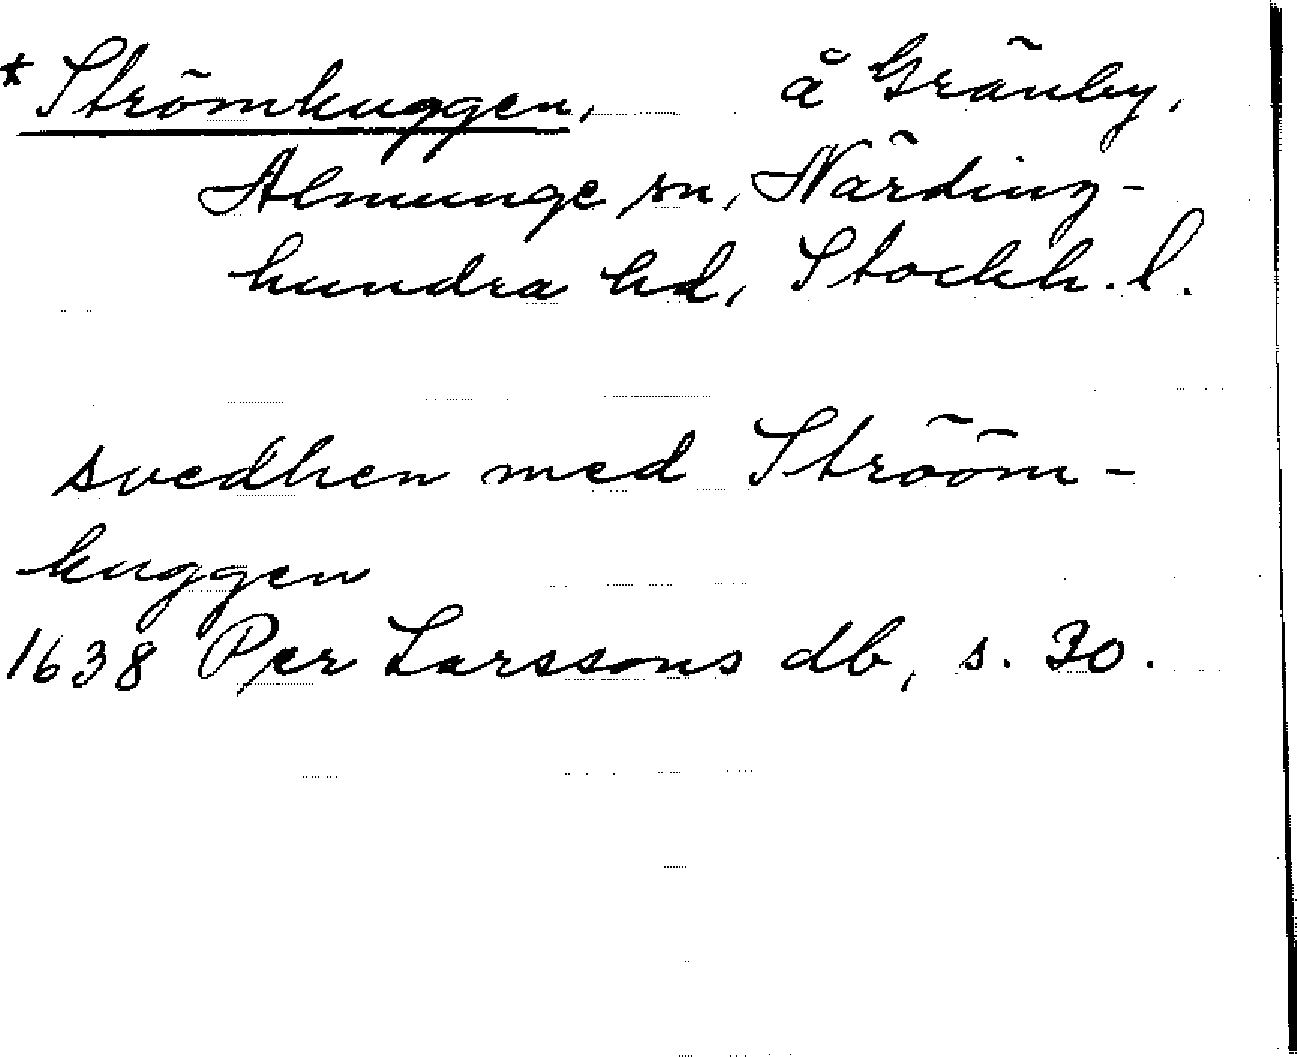 *Strömkuggen, å Gränby,
Almunge sn, Närding-
hundra hd, Stockh. l.
svedhen med Strööm-
kuggen
1638 Per Larssons db, s. 30.